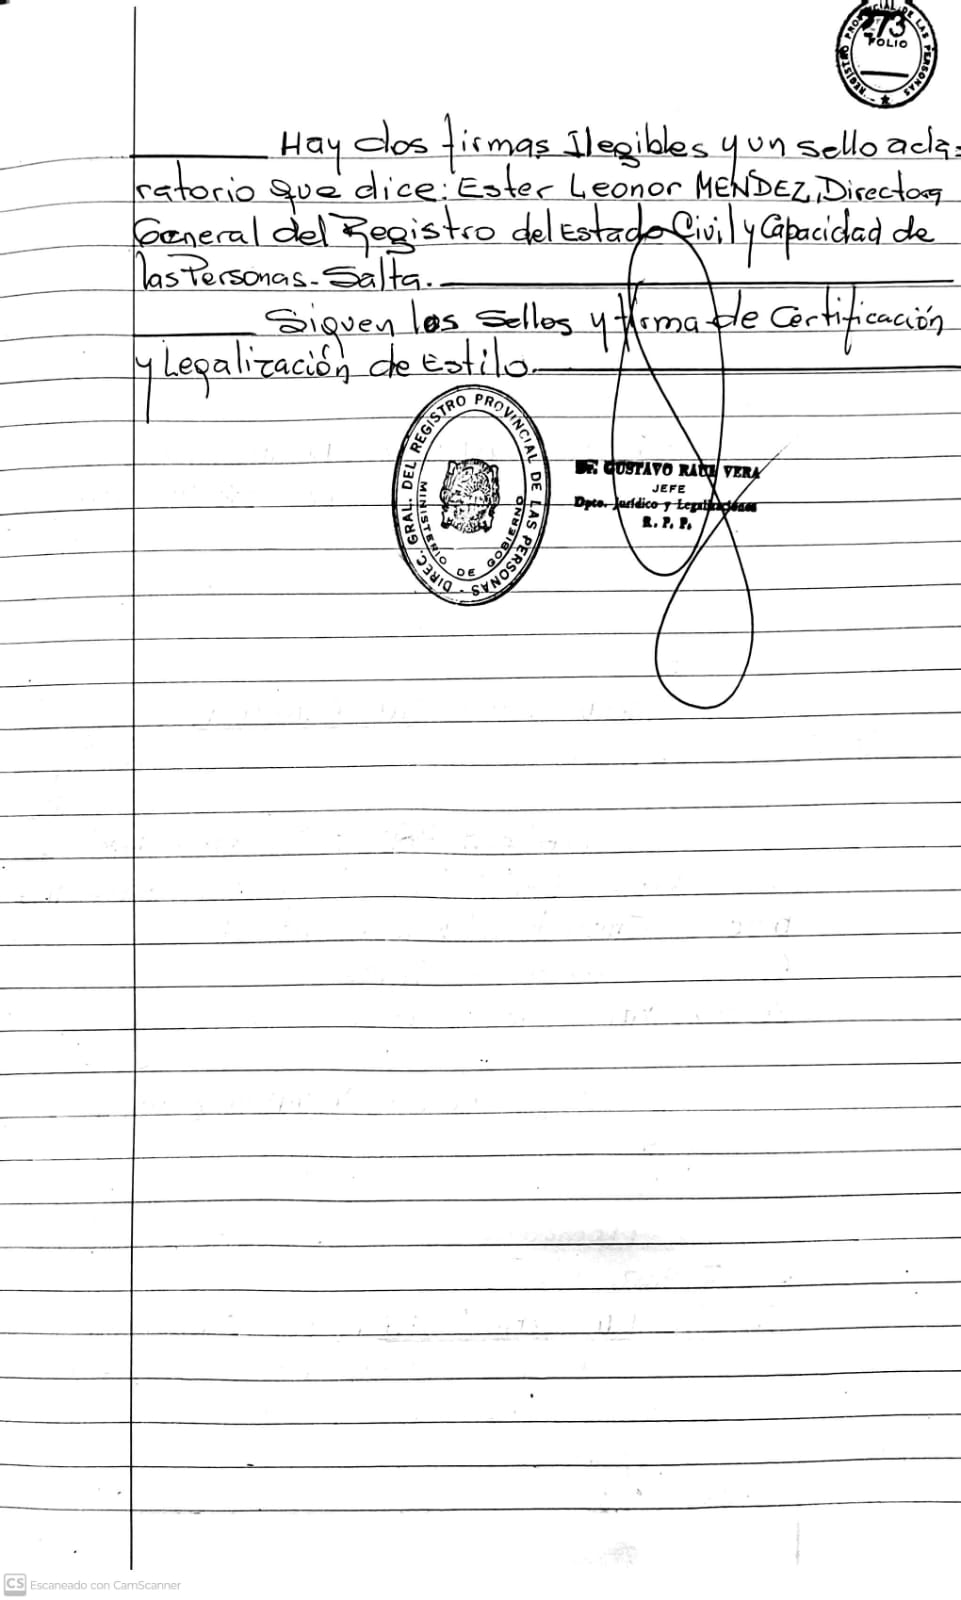 73
FOLIO
Hay dos firmas Ilegibles y un sello acla=
ratorio que dice: Ester Leonor MENDEZ, Directora
General del Registro del Estado Civil y Capacidad de
las Personas - Salta.
Siguen los sellos y firma de Certificación
y Legalización de Estilo.
DIREC. GRAL. DEL REGISTRO PROVINCIAL DE LAS PERSONAS
MINISTERIO DE GOBIERNO
Dr. GUSTAVO RAUL VERA
JEFE
Dpto. Jurídico y Legalizaciones
R. P. P.
CS Escaneado con CamScanner